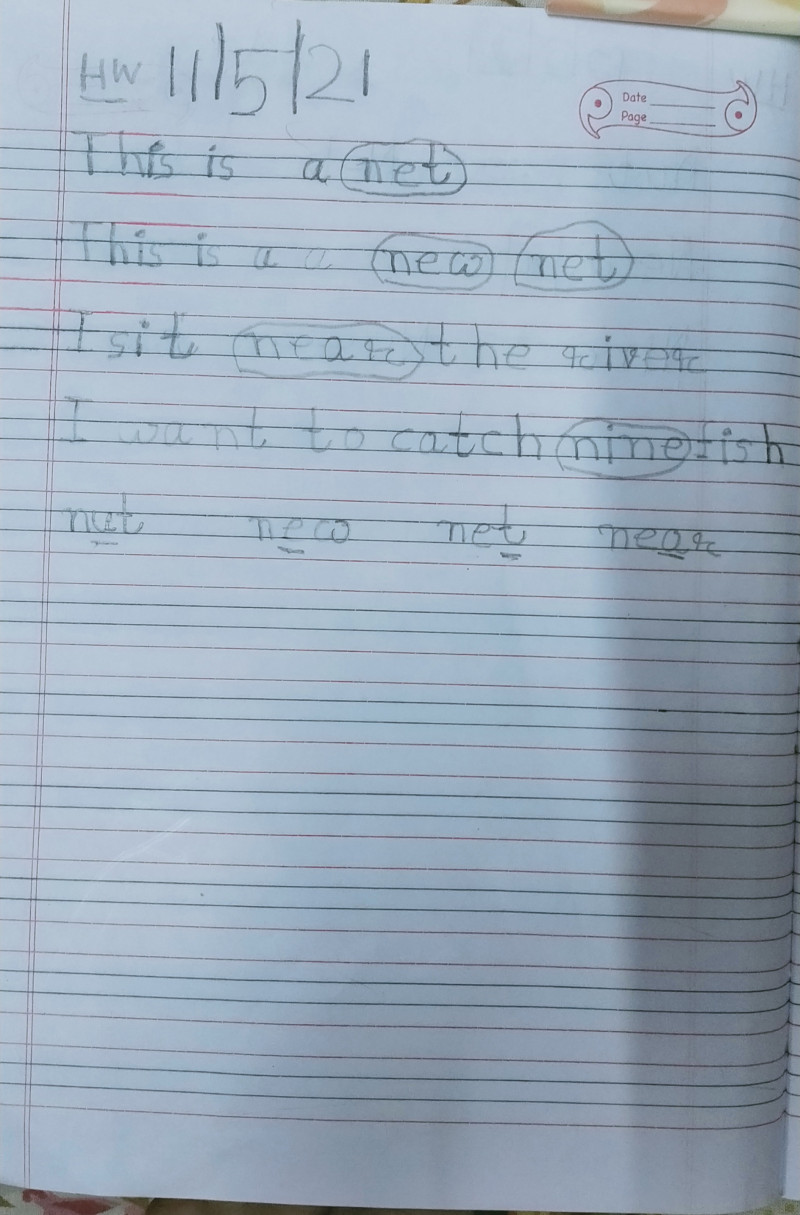 HW 11/5/21
Date
Page
This is a net
This is a a new net
I sit near the river
I want to catch nine fish
nut new net near